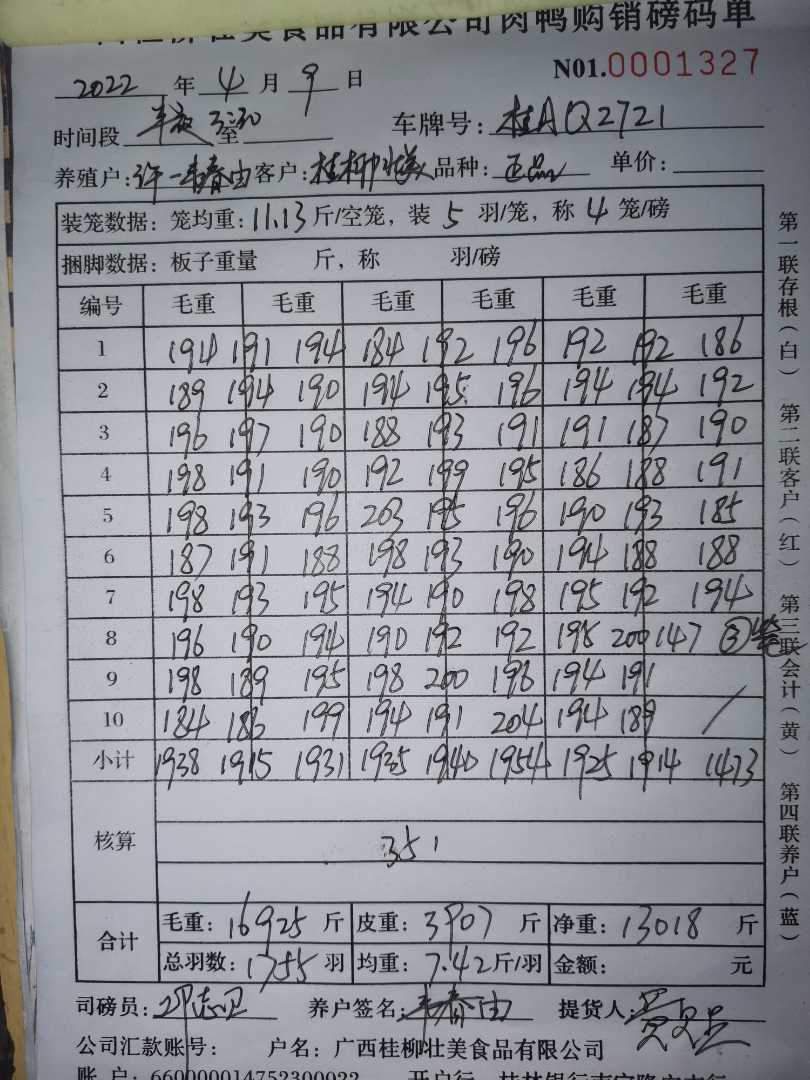 壮美食品有限公司肉鸭购销磅码单
2022 年 4 月 9 日 N01.0001327
时间段 半夜 3:30 至 车牌号: 桂AQ2721
养殖户: 许一韦春由 客户: 桂柳壮美 品种: 正品 单价:
装笼数据: 笼均重: 11.13 斤/空笼, 装 5 羽/笼, 称 4 笼/磅
捆脚数据: 板子重量 斤, 称 羽/磅
编号 毛重 毛重 毛重 毛重 毛重 毛重
1 194 191 194 184 192 196 192 192 186
2 189 194 190 194 195 196 194 194 192
3 196 197 190 188 193 191 191 187 190
4 198 191 190 192 199 195 186 188 191
5 198 193 196 203 195 196 190 193 185
6 187 191 188 198 193 190 194 188 188
7 198 193 195 194 190 198 195 192 194
8 196 190 194 190 192 192 195 200 147 ③笼
9 198 189 195 198 200 196 194 191
10 184 186 199 194 191 204 194 189 /
小计 1938 1915 1931 1935 1940 1954 1925 1914 1473
核算
351
合计 毛重: 16925 斤 皮重: 3907 斤 净重: 13018 斤
总羽数: 1755 羽 均重: 7.42 斤/羽 金额: 元
司磅员: 邓志卫 养户签名: 韦春由 提货人:
公司汇款账号: 户名: 广西桂柳壮美食品有限公司
账 户: 660000014752300022 开户行
第一联存根(白) 第二联客户(红) 第三联会计(黄) 第四联养户(蓝)